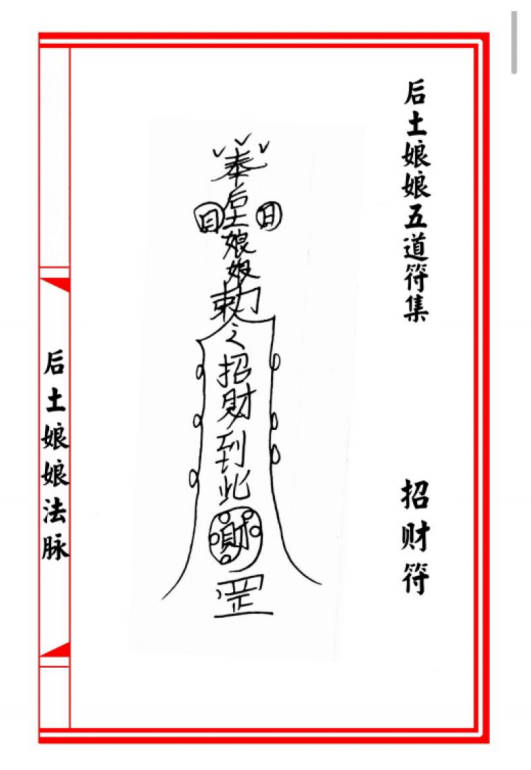 后土娘娘五道符集
招财符
奉
后土娘娘
日
日
勅
之
招財到此
財
罡
后土娘娘法脉